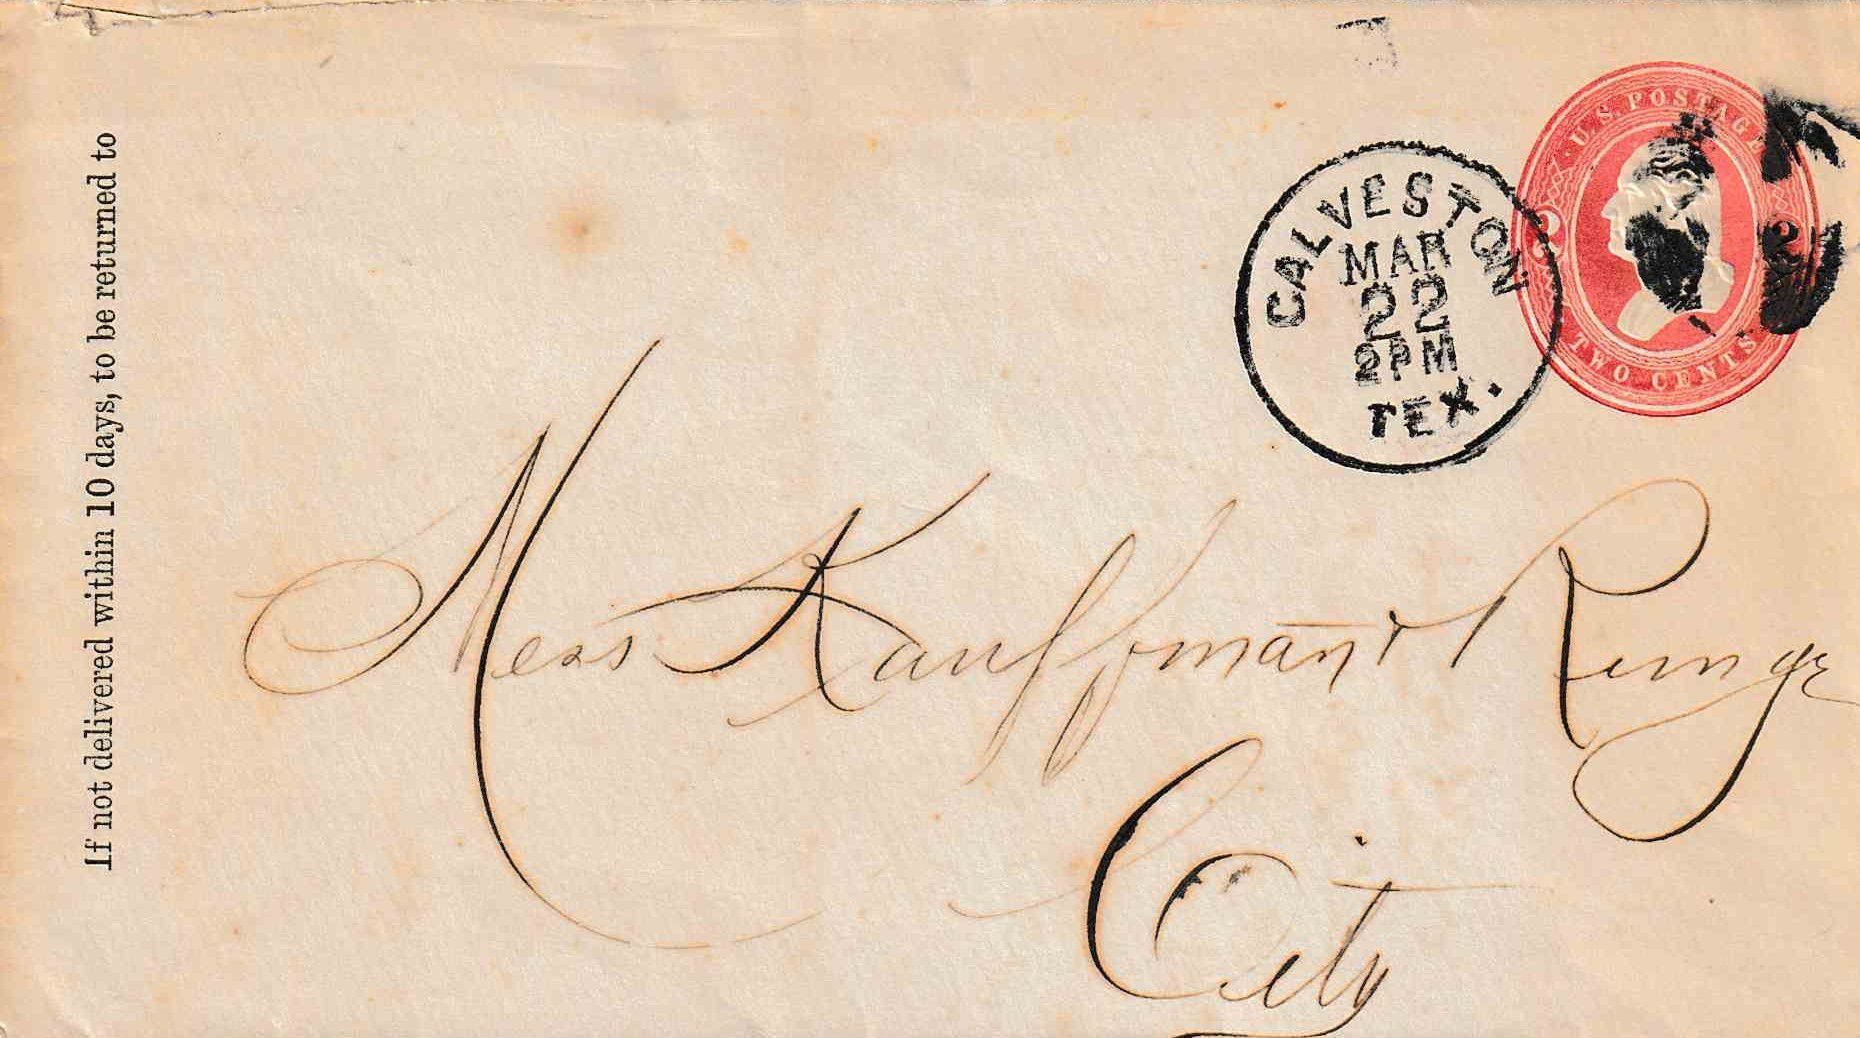 If not delivered within 10 days, to be returned to
U.S. POSTAGE
2 2
TWO CENTS
GALVESTON
MAR
22
2PM
TEX.
Mess Kauffman & Runge
City